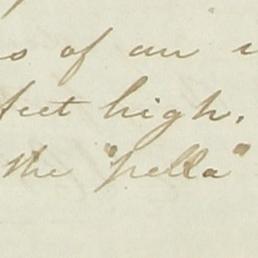 of an
feet high.
the "pella"